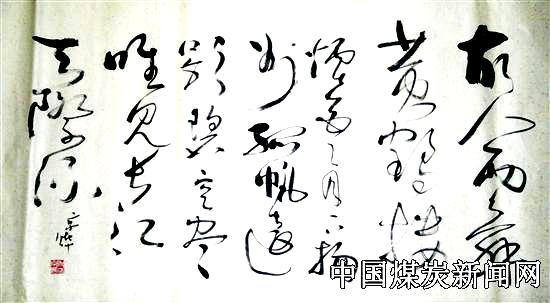 故人西辞
黄鹤楼
烟花三月下扬
州孤帆远
影碧空尽
唯见长江
天际流
中国煤炭新闻网